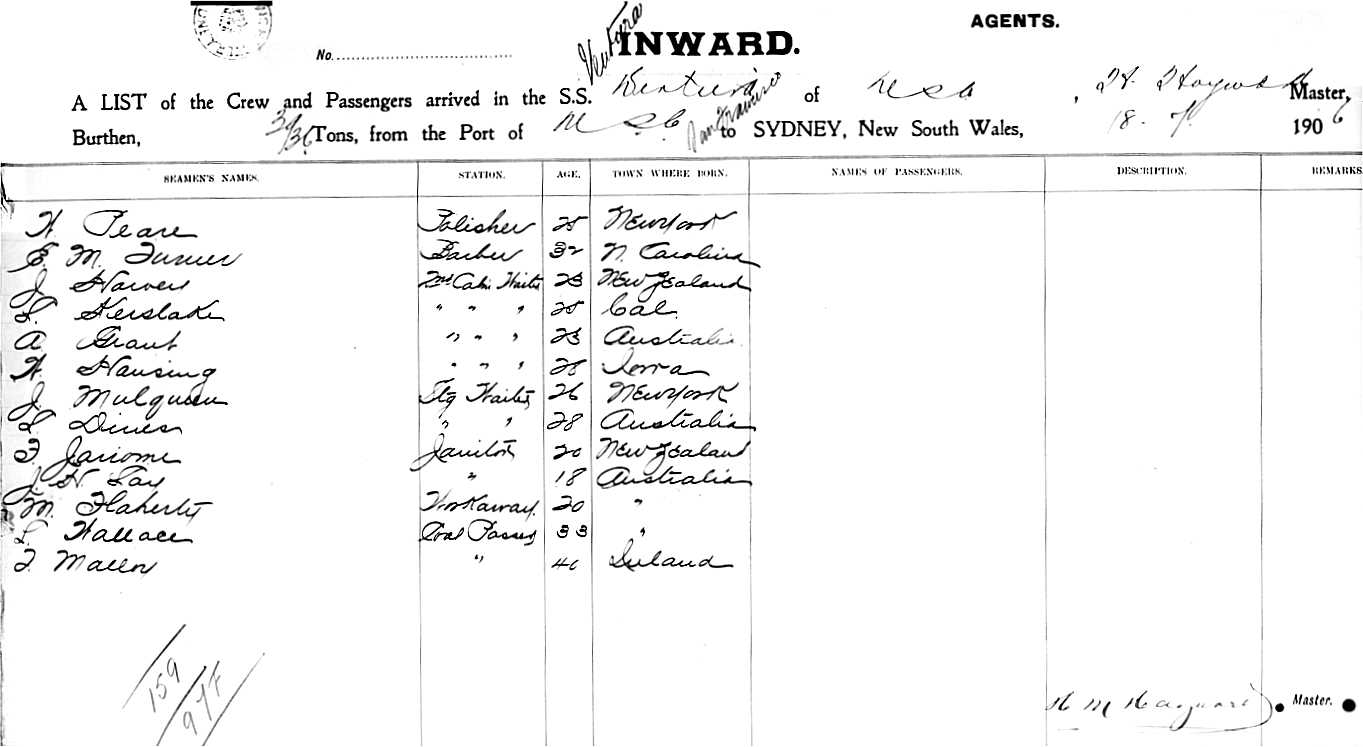 AGENTS.
No.
INWARD.
Ventura
A LIST of the Crew and Passengers arrived in the S.S. Ventura of USA, H. Hayward Master,
Burthen, Tons, from the Port of San Francisco to SYDNEY, New South Wales, 18. 7. 1906
SEAMEN'S NAMES. STATION. AGE. TOWN WHERE BORN. NAMES OF PASSENGERS. DESCRIPTION. REMARKS
H Peare Polisher 25 New York
E. M. Turner Barber 32 N. Carolina
J. 2nd Cabin Waiter 23 New Zealand
L. Kerslake " " " 25 Cal.
A Grant " " " 23 Australia
H Hansing " " " 28 Iowa
J. Mulqueen Stg Waiter 26 New York
L. Dines " " 28 Australia
F. Janitor 20 New Zealand
J. H. Tay " 18 Australia
M. Flaherty Workaway. 20 "
L. Wallace Coal Passer 33 "
F. " 40 Ireland
159
977
H M Hayward Master.